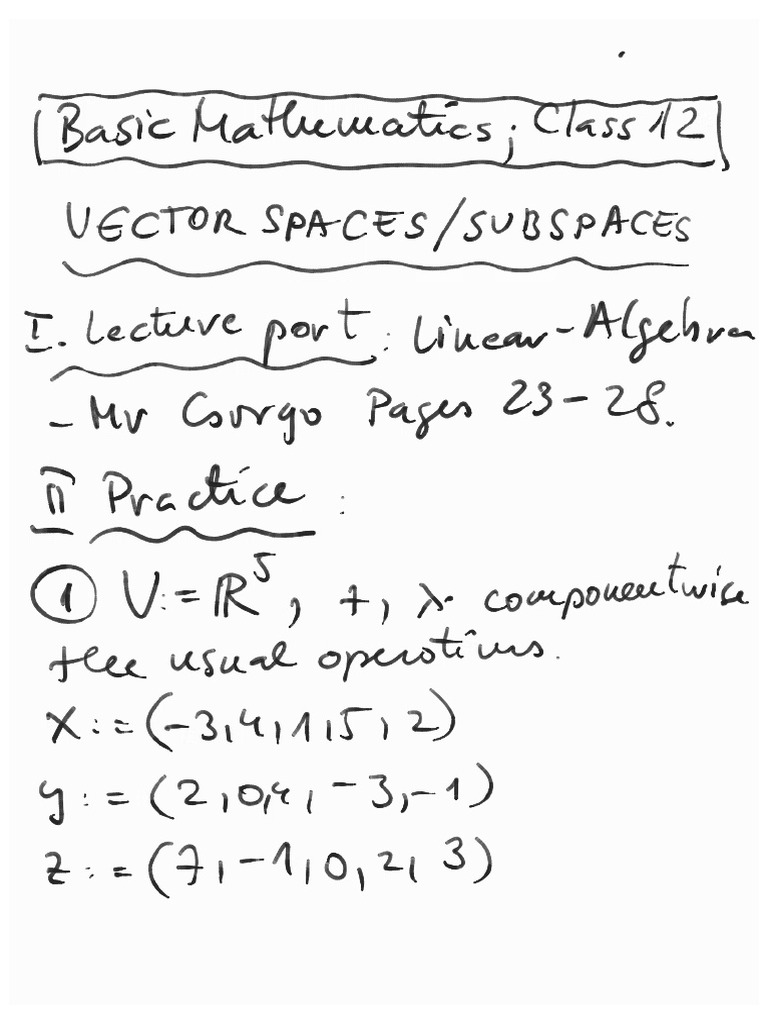 Basic Mathematics; Class 12
VECTOR SPACES/SUBSPACES
I. Lecture part: Linear-Algebra
- Mr Pages 23-28.
II Practice:
① V:=ℝ⁵, +, λ· componentwise
the usual operations.
x:=(-3,4,1,5,2)
y:=(2,0,4,-3,-1)
z:=(7,-1,0,2,3)